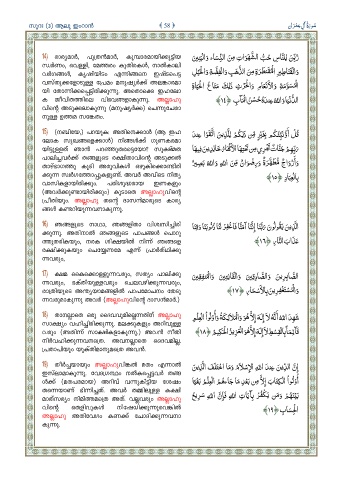 സൂറഃ (3) ആലു ഇംറാൻ
﴾ 58 ﴿
سُورَةُ آلِ عِمْرَانَ
14) ഭാര്യമാർ, പുത്രൻമാർ, കൂമ്പാരമായിക്കൂട്ടിയ
സ്വർണം, വെള്ളി, മേത്തരം കുതിരകൾ, നാൽകാലി
വർഗങ്ങൾ, കൃഷിയിടം എന്നിങ്ങനെ ഇഷ്ടപ്പെട്ട
വസ്തുക്കളോടുള്ള പ്രേമം മനുഷ്യർക്ക് അലങ്കാരമാ
യി തോന്നിക്കപ്പെട്ടിരിക്കുന്നു. അതൊക്കെ ഇഹലോ
ക ജീവിതത്തിലെ വിഭവങ്ങളാകുന്നു. അല്ലാഹു
വിന്റെ അടുക്കലാകുന്നു (മനുഷ്യർക്ക്) ചെന്നുചേരാ
നുള്ള ഉത്തമ സങ്കേതം.
زُيِّنَ لِلنَّاسِ حُبُّ الشَّهَوَاتِ مِنَ النِّسَاءِ وَالْبَنِينَ
وَالْقَنَاطِيرِ الْمُقَنْطَرَةِ مِنَ الذَّهَبِ وَالْفِضَّةِ وَالْخَيْلِ
الْمُسَوَّمَةِ وَالْأَنْعَامِ وَالْحَرْثِ ذَلِكَ مَتَاعُ الْحَيَاةِ
الدُّنْيَا وَاللَّهُ عِنْدَهُ حُسْنُ الْمَآبِ ﴿١٤﴾
15) (നബിയേ,) പറയുക: അതിനെക്കാൾ (ആ ഇഹ
ലോക സുഖങ്ങളെക്കാൾ) നിങ്ങൾക്ക് ഗുണകരമാ
യിട്ടുള്ളത് ഞാൻ പറഞ്ഞുതരട്ടെയോ? സൂക്ഷ്മത
പാലിച്ചവർക്ക് തങ്ങളുടെ രക്ഷിതാവിന്റെ അടുക്കൽ
താഴ്ഭാഗത്തു കൂടി അരുവികൾ ഒഴുകിക്കൊണ്ടിരി
ക്കുന്ന സ്വർഗത്തോപ്പുകളുണ്ട്. അവർ അവിടെ നിത്യ
വാസികളായിരിക്കും. പരിശുദ്ധരായ ഇണകളും
(അവർക്കുണ്ടായിരിക്കും.) കൂടാതെ അല്ലാഹുവിന്റെ
പ്രീതിയും. അല്ലാഹു തന്റെ ദാസൻമാരുടെ കാര്യ
ങ്ങൾ കണ്ടറിയുന്നവനാകുന്നു.
قُلْ أَؤُنَبِّئُكُمْ بِخَيْرٍ مِنْ ذَلِكُمْ لِلَّذِينَ اتَّقَوْا عِنْدَ
رَبِّهِمْ جَنَّاتٌ تَجْرِي مِنْ تَحْتِهَا الْأَنْهَارُ خَالِدِينَ فِيهَا
وَأَزْوَاجٌ مُطَهَّرَةٌ وَرِضْوَانٌ مِنَ اللَّهِ وَاللَّهُ بَصِيرٌ
بِالْعِبَادِ ﴿١٥﴾
16) ഞങ്ങളുടെ നാഥാ, ഞങ്ങളിതാ വിശ്വസിച്ചിരി
ക്കുന്നു. അതിനാൽ ഞങ്ങളുടെ പാപങ്ങൾ പൊറു
ത്തുതരികയും, നരക ശിക്ഷയിൽ നിന്ന് ഞങ്ങളെ
രക്ഷിക്കുകയും ചെയ്യേണമേ എന്ന് പ്രാർത്ഥിക്കു
ന്നവരും,
الَّذِينَ يَقُولُونَ رَبَّنَا إِنَّنَا آمَنَّا فَاغْفِرْ لَنَا ذُنُوبَنَا وَقِنَا
عَذَابَ النَّارِ ﴿١٦﴾
17) ക്ഷമ കൈക്കൊള്ളുന്നവരും, സത്യം പാലിക്കു
ന്നവരും, ഭക്തിയുള്ളവരും ചെലവഴിക്കുന്നവരും,
രാത്രിയുടെ അന്ത്യയാമങ്ങളിൽ പാപമോചനം തേടു
ന്നവരുമാകുന്നു അവർ (അല്ലാഹുവിന്റെ ദാസൻമാർ.)
الصَّابِرِينَ وَالصَّادِقِينَ وَالْقَانِتِينَ وَالْمُنْفِقِينَ
وَالْمُسْتَغْفِرِينَ بِالْأَسْحَارِ ﴿١٧﴾
18) താനല്ലാതെ ഒരു ദൈവവുമില്ലെന്നതിന് അല്ലാഹു
സാക്ഷ്യം വഹിച്ചിരിക്കുന്നു. മലക്കുകളും അറിവുള്ള
വരും (അതിന് സാക്ഷികളാകുന്നു.) അവൻ നീതി
നിർവഹിക്കുന്നവനത്രെ. അവനല്ലാതെ ദൈവമില്ല.
പ്രതാപിയും യുക്തിമാനുമത്രെ അവൻ.
شَهِدَ اللَّهُ أَنَّهُ لَا إِلَهَ إِلَّا هُوَ وَالْمَلَائِكَةُ وَأُولُو الْعِلْمِ
قَائِمًا بِالْقِسْطِ لَا إِلَهَ إِلَّا هُوَ الْعَزِيزُ الْحَكِيمُ ﴿١٨﴾
19) തീർച്ചയായും അല്ലാഹുവിങ്കൽ മതം എന്നാൽ
ഇസ്ലാമാകുന്നു. വേദഗ്രന്ഥം നൽകപ്പെട്ടവർ തങ്ങ
ൾക്ക് (മതപരമായ) അറിവ് വന്നുകിട്ടിയ ശേഷം
തന്നെയാണ് ഭിന്നിച്ചത്. അവർ തമ്മിലുള്ള കക്ഷി
മാത്സര്യം നിമിത്തമത്രെ അത്. വല്ലവരും അല്ലാഹു
വിന്റെ തെളിവുകൾ നിഷേധിക്കുന്നുവെങ്കിൽ
അല്ലാഹു അതിവേഗം കണക്ക് ചോദിക്കുന്നവനാ
കുന്നു.
إِنَّ الدِّينَ عِنْدَ اللَّهِ الْإِسْلَامُ وَمَا اخْتَلَفَ الَّذِينَ
أُوتُوا الْكِتَابَ إِلَّا مِنْ بَعْدِ مَا جَاءَهُمُ الْعِلْمُ بَغْيًا
بَيْنَهُمْ وَمَنْ يَكْفُرْ بِآيَاتِ اللَّهِ فَإِنَّ اللَّهَ سَرِيعُ
الْحِسَابِ ﴿١٩﴾